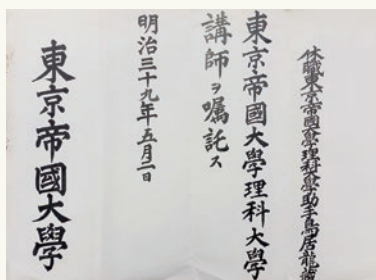 休職東京帝國大學理科大學助手鳥居龍藏
東京帝國大學理科大學
講師ヲ嘱託ス
明治三十九年五月二日
東京帝國大學